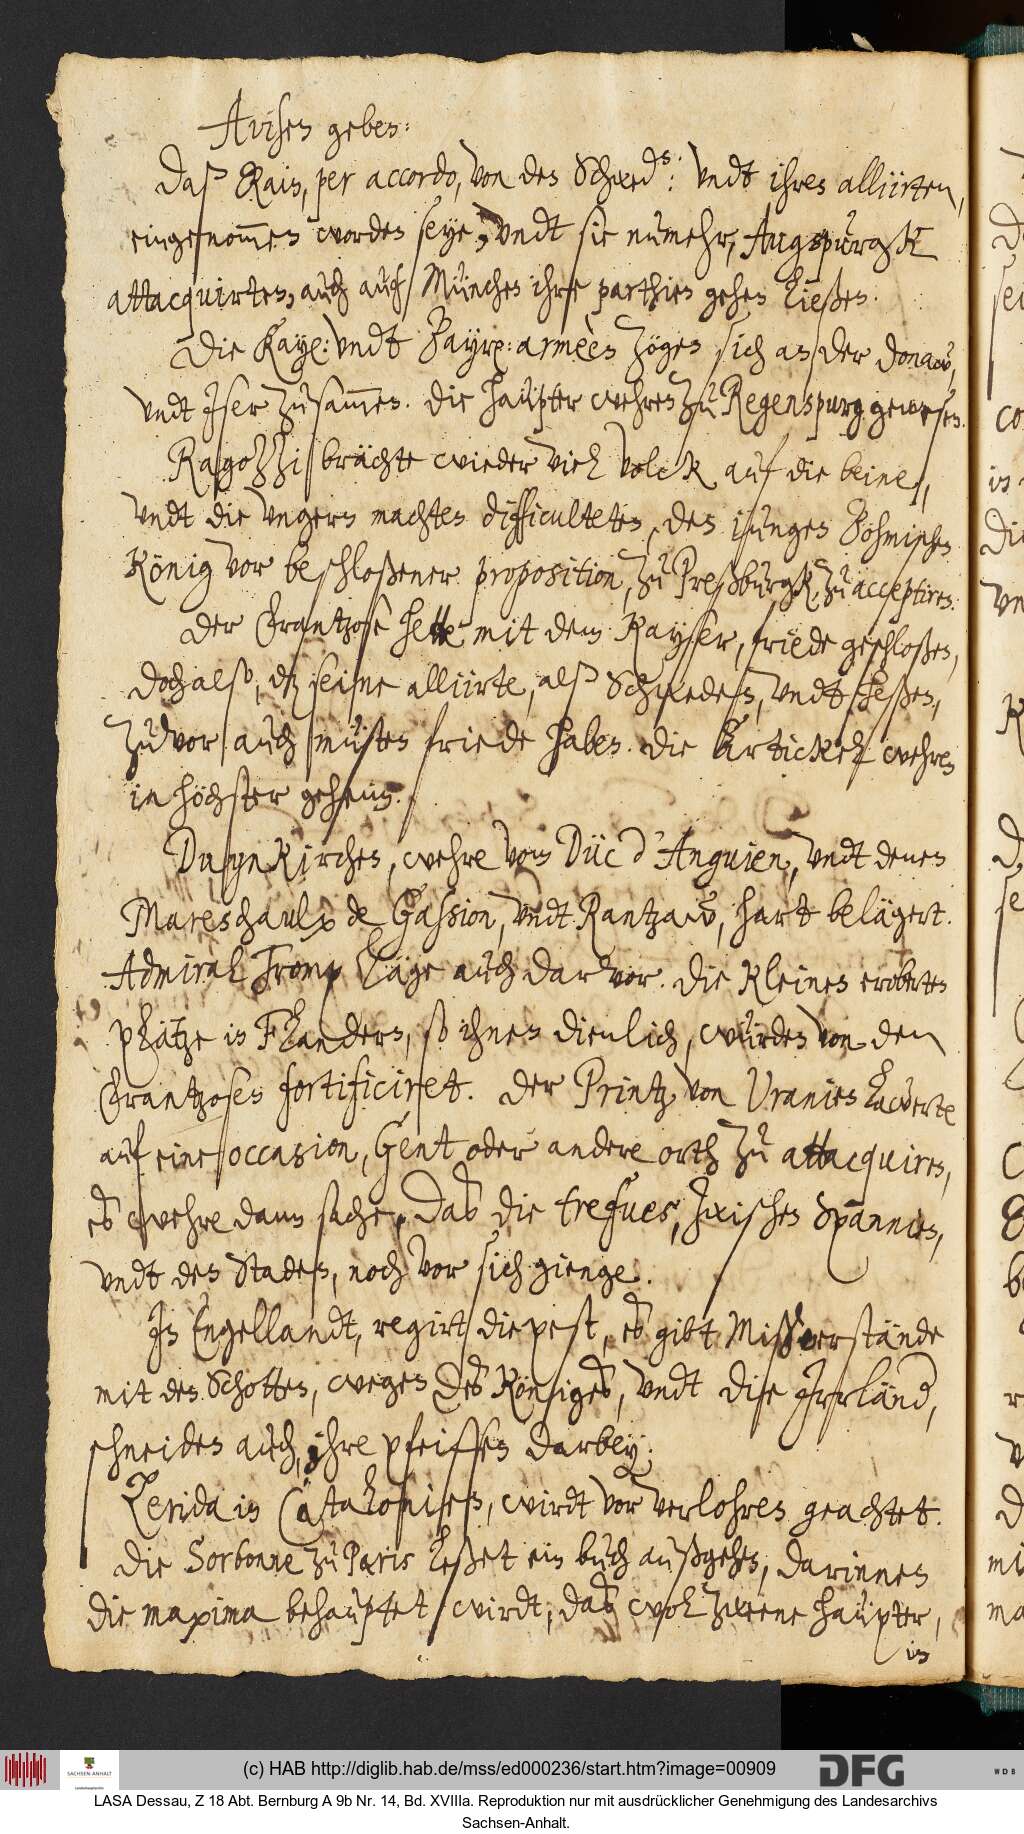 Avisen geben:
Daß Rain, per accordo, von den Schwed.n: vndt ihren alliirten,
eingenom̅en worden seye, vndt sie nùmehr, Augspùrgk
attacquirten, aùch auf Mùnchen ihre parthien gehen ließen.
Die Kayß: vndt Bayr: armèen zögen sich an der Donaw,
vndt Jser zùsam̅en. Die Haùpter wehren zù Regenspurg gewesen.
Ragozzj brächte wieder viel volck auf die beine,
vndt die Vngern machten difficulteten, den jungen Böhmischen
König vor beschloßener proposition, zù Preßbùrgk, zù acceptiren.
Der Frantzose hette mit dem Kayser, friede geschloßen,
doch also, dz seine alliirte, alß Schweden, vndt Heßen,
zùvor aùch mùsten friede haben. Die Artickel wehren
in höchster geheim.
Dùynkirchen, wehre vom Dùc d'Anguien, vndt denen
Mareschaulx de Gassion, vndt Rantzaw, hart belägert.
Admiral Tromp läge aùch darvor. Die kleinen eroberten
plätze in Flandern, so ihnen dienlich, wùrden von den
Frantzosen fortificiret. Der Printz von Vranien laverte
auf eine occasion, Gent oder andere orth zù attacquiren,
es wehre dann sache, daß die trefues, zwischen Spannien,
vndt den Staden, noch vor sich gienge.
Jn Engellandt, regirt die pest, es gibt Mißverstände
mit den Schotten, wegen des Königes, vndt die Jrrländ.,
schneiden aùch, ihre pfeiffen darbey.
Lerida in Catalonien, wirdt vor verlohren geachtet.
Die Sorbonne zù Paris leßet ein bùch außgehen, darinnen
die maxima behaùptet wirdt, daß wol zweene Haùpter,
in
(c) HAB http://diglib.hab.de/mss/ed000236/start.htm?image=00909
SACHSEN-ANHALT
DFG
WDB
LASA Dessau, Z 18 Abt. Bernburg A 9b Nr. 14, Bd. XVIIIa. Reproduktion nur mit ausdrücklicher Genehmigung des Landesarchivs
Sachsen-Anhalt.